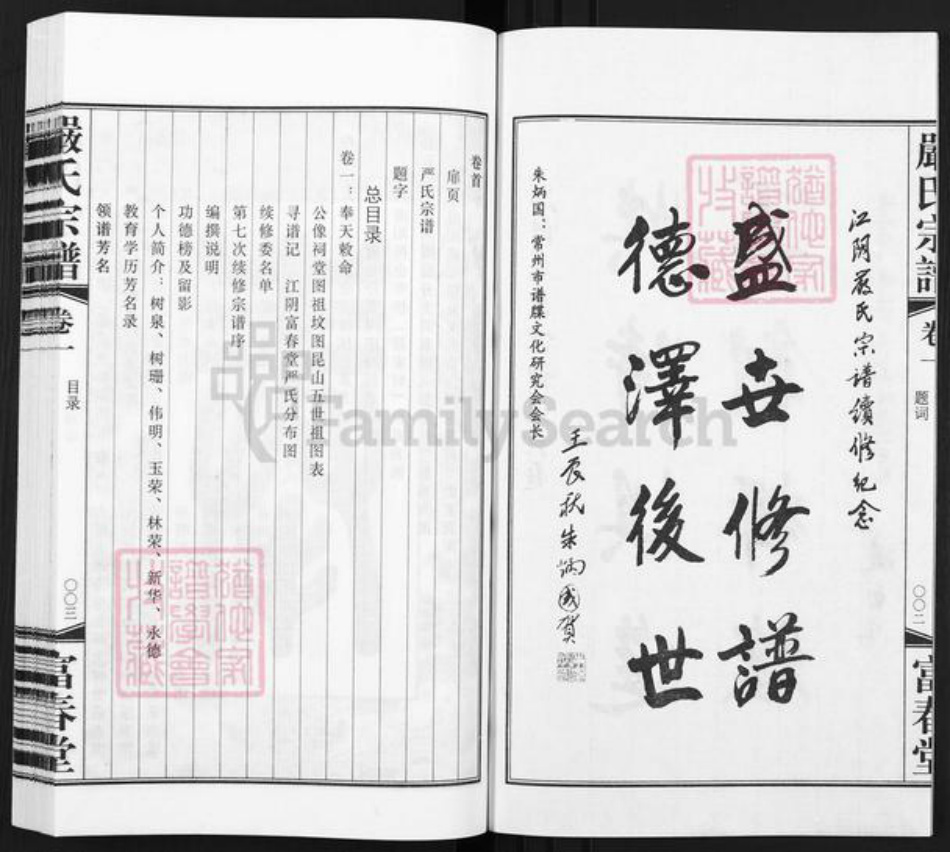 嚴氏宗譜
卷一
题词
〇〇二
富春堂
江阴严氏宗谱續修纪念
盛世修譜
德澤後世
朱炳国、常州市谱牒文化研究会会长
壬辰秋朱炳國贺
卷首
扉页
严氏宗谱
题字
总目录
卷一：奉天敕命
公像祠堂图祖坟图昆山五世祖图表
寻谱记 江阴富春堂严氏分布图
续修委名单
第七次续修宗谱序
编撰说明
功德榜及留影
个人简介：树泉、树珊、伟明、玉荣、林荣、新华、永德
教育学历芳名录
领谱芳名
嚴氏宗譜
卷一
目录
〇〇三
富春堂
FamilySearch